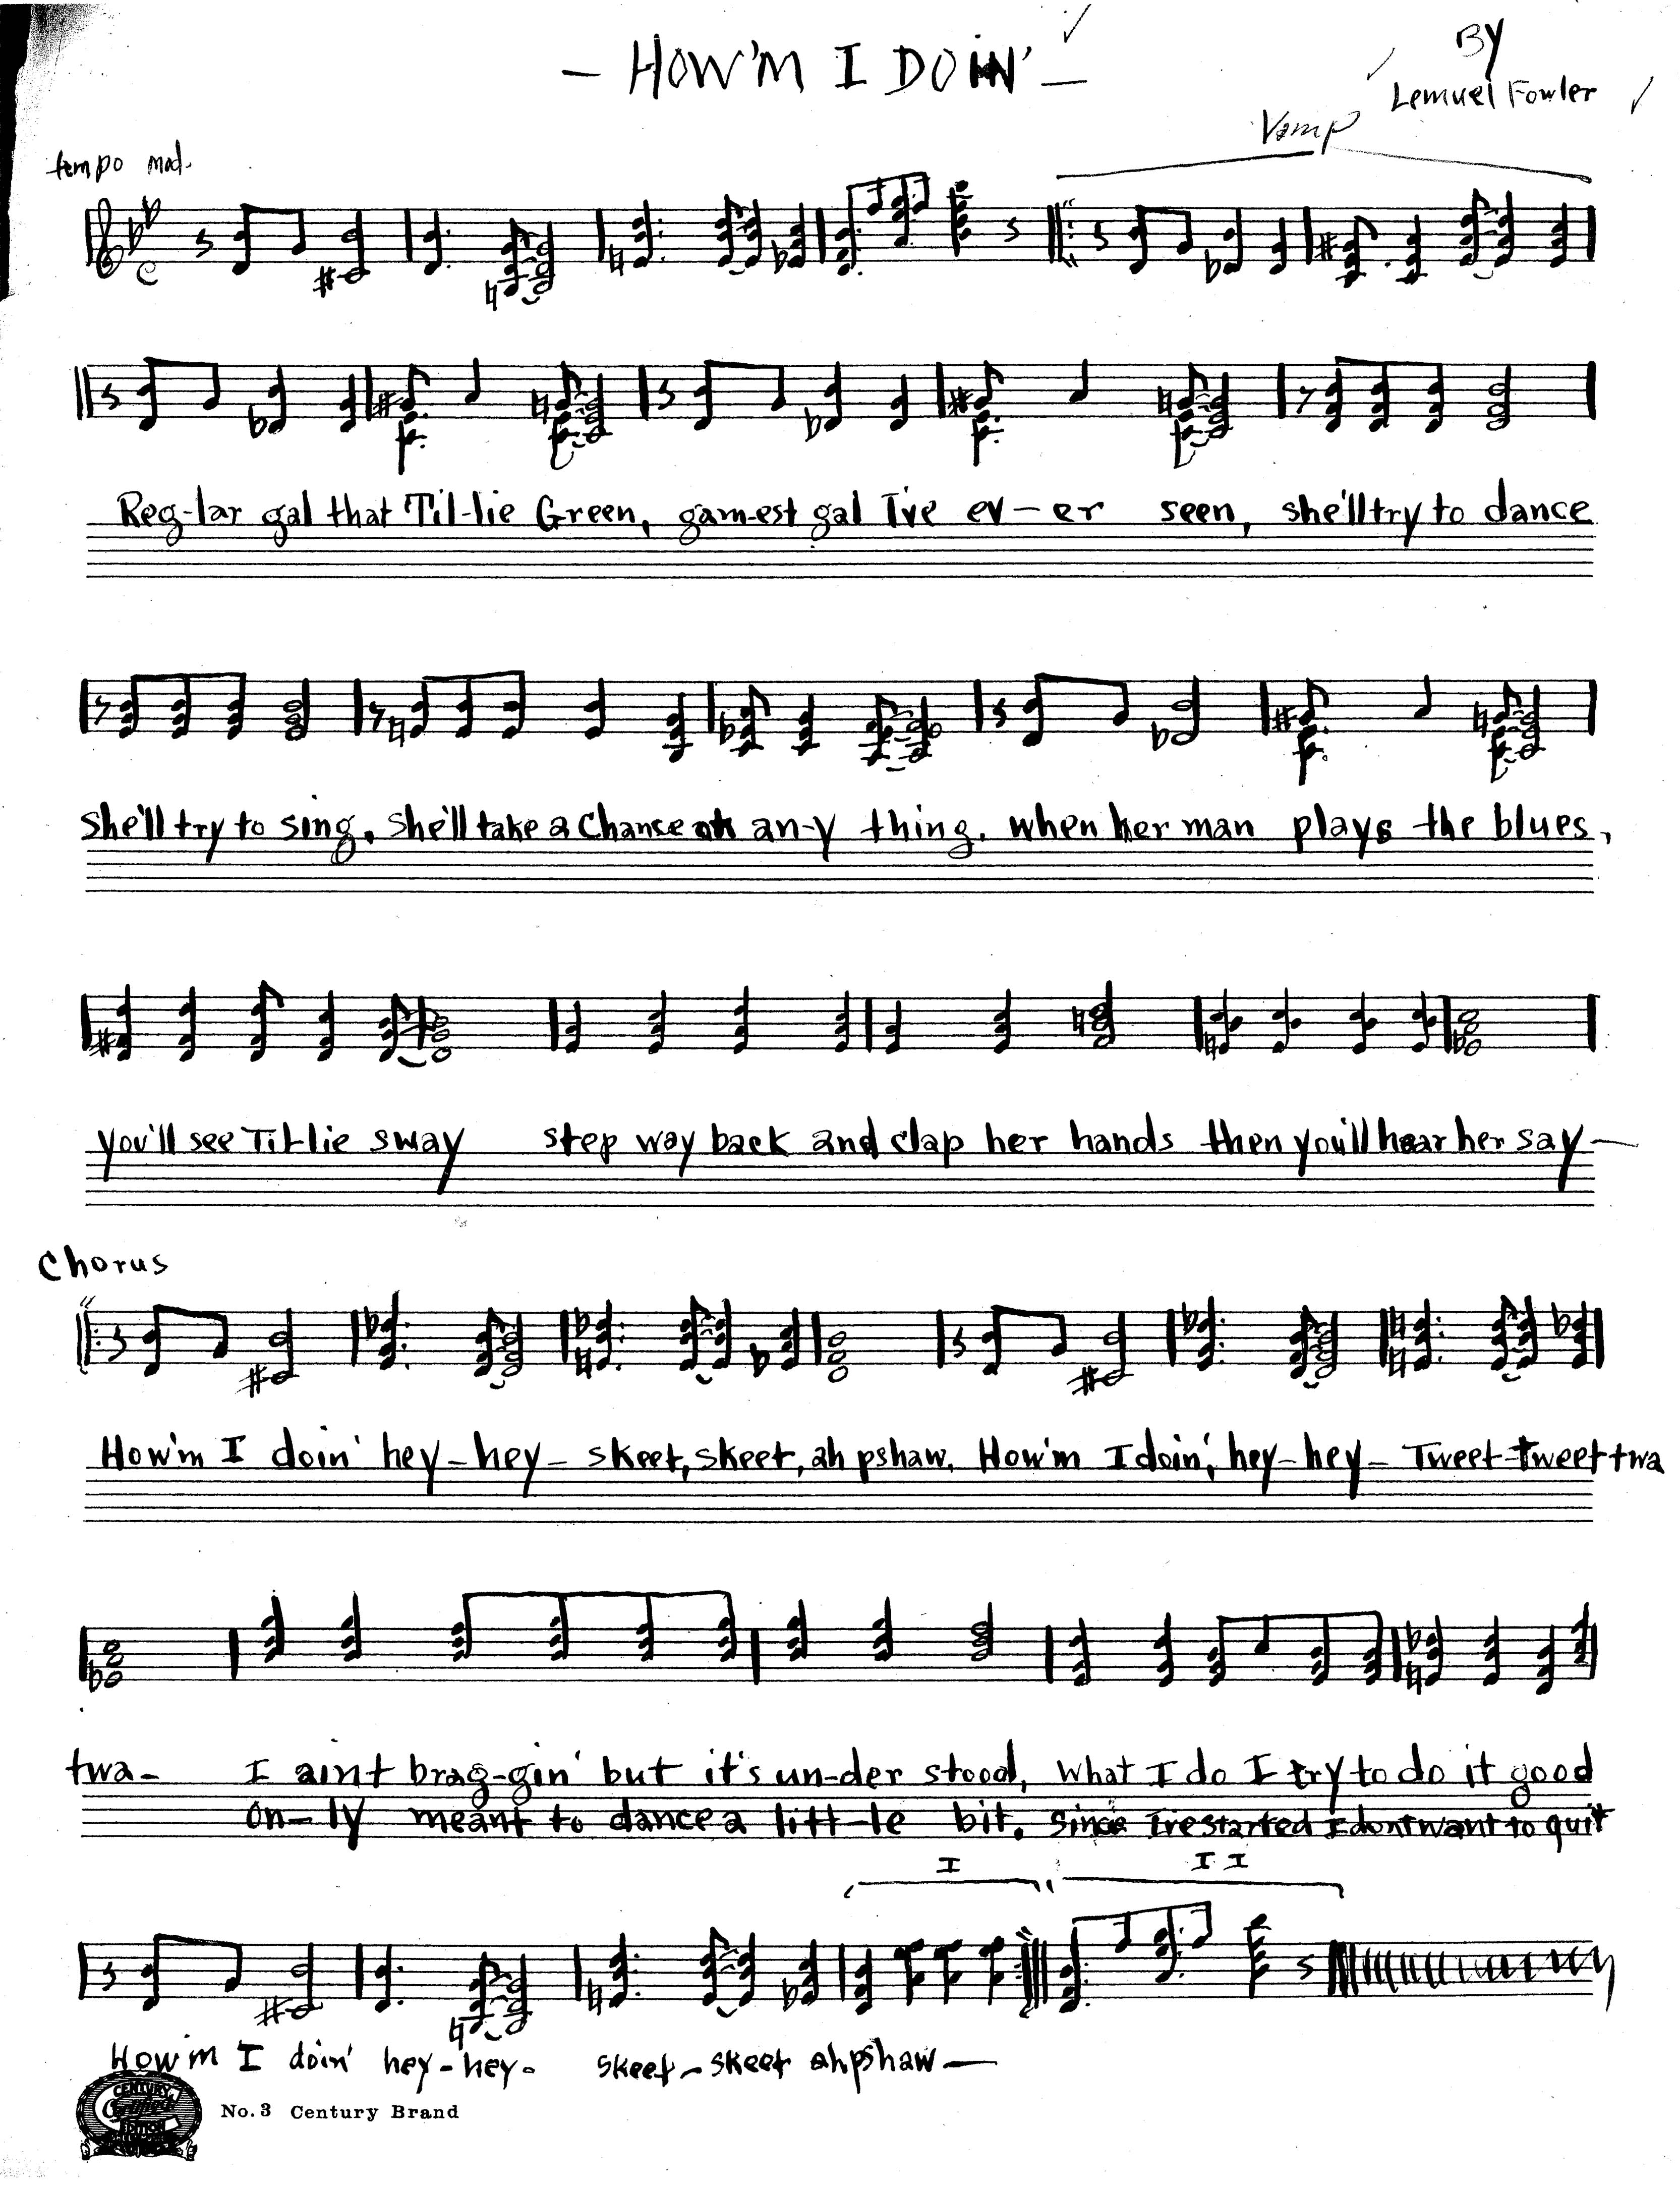 - HOW'M I DOIN' -
BY
Lemuel Fowler
Vamp
tempo mod.
Reg-lar gal that Til-lie Green, gam-est gal I've ev-er seen, she'll try to dance
she'll try to sing, she'll take a chance on an-y thing. when her man plays the blues,
you'll see Til-lie sway step way back and clap her hands then you'll hear her say -
Chorus
How'm I doin' hey-hey- skeet, skeet, ah pshaw, How'm I doin', hey-hey- Tweet-tweet twa
twa- I aint brag-gin' but it's un-der stood, what I do I try to do it good
on-ly meant to dance a litt-le bit. since I've started I dont want to quit
I II
How'm I doin' hey-hey- skeet-skeet ah pshaw-
CENTURY
Certified
EDITION
No. 3 Century Brand